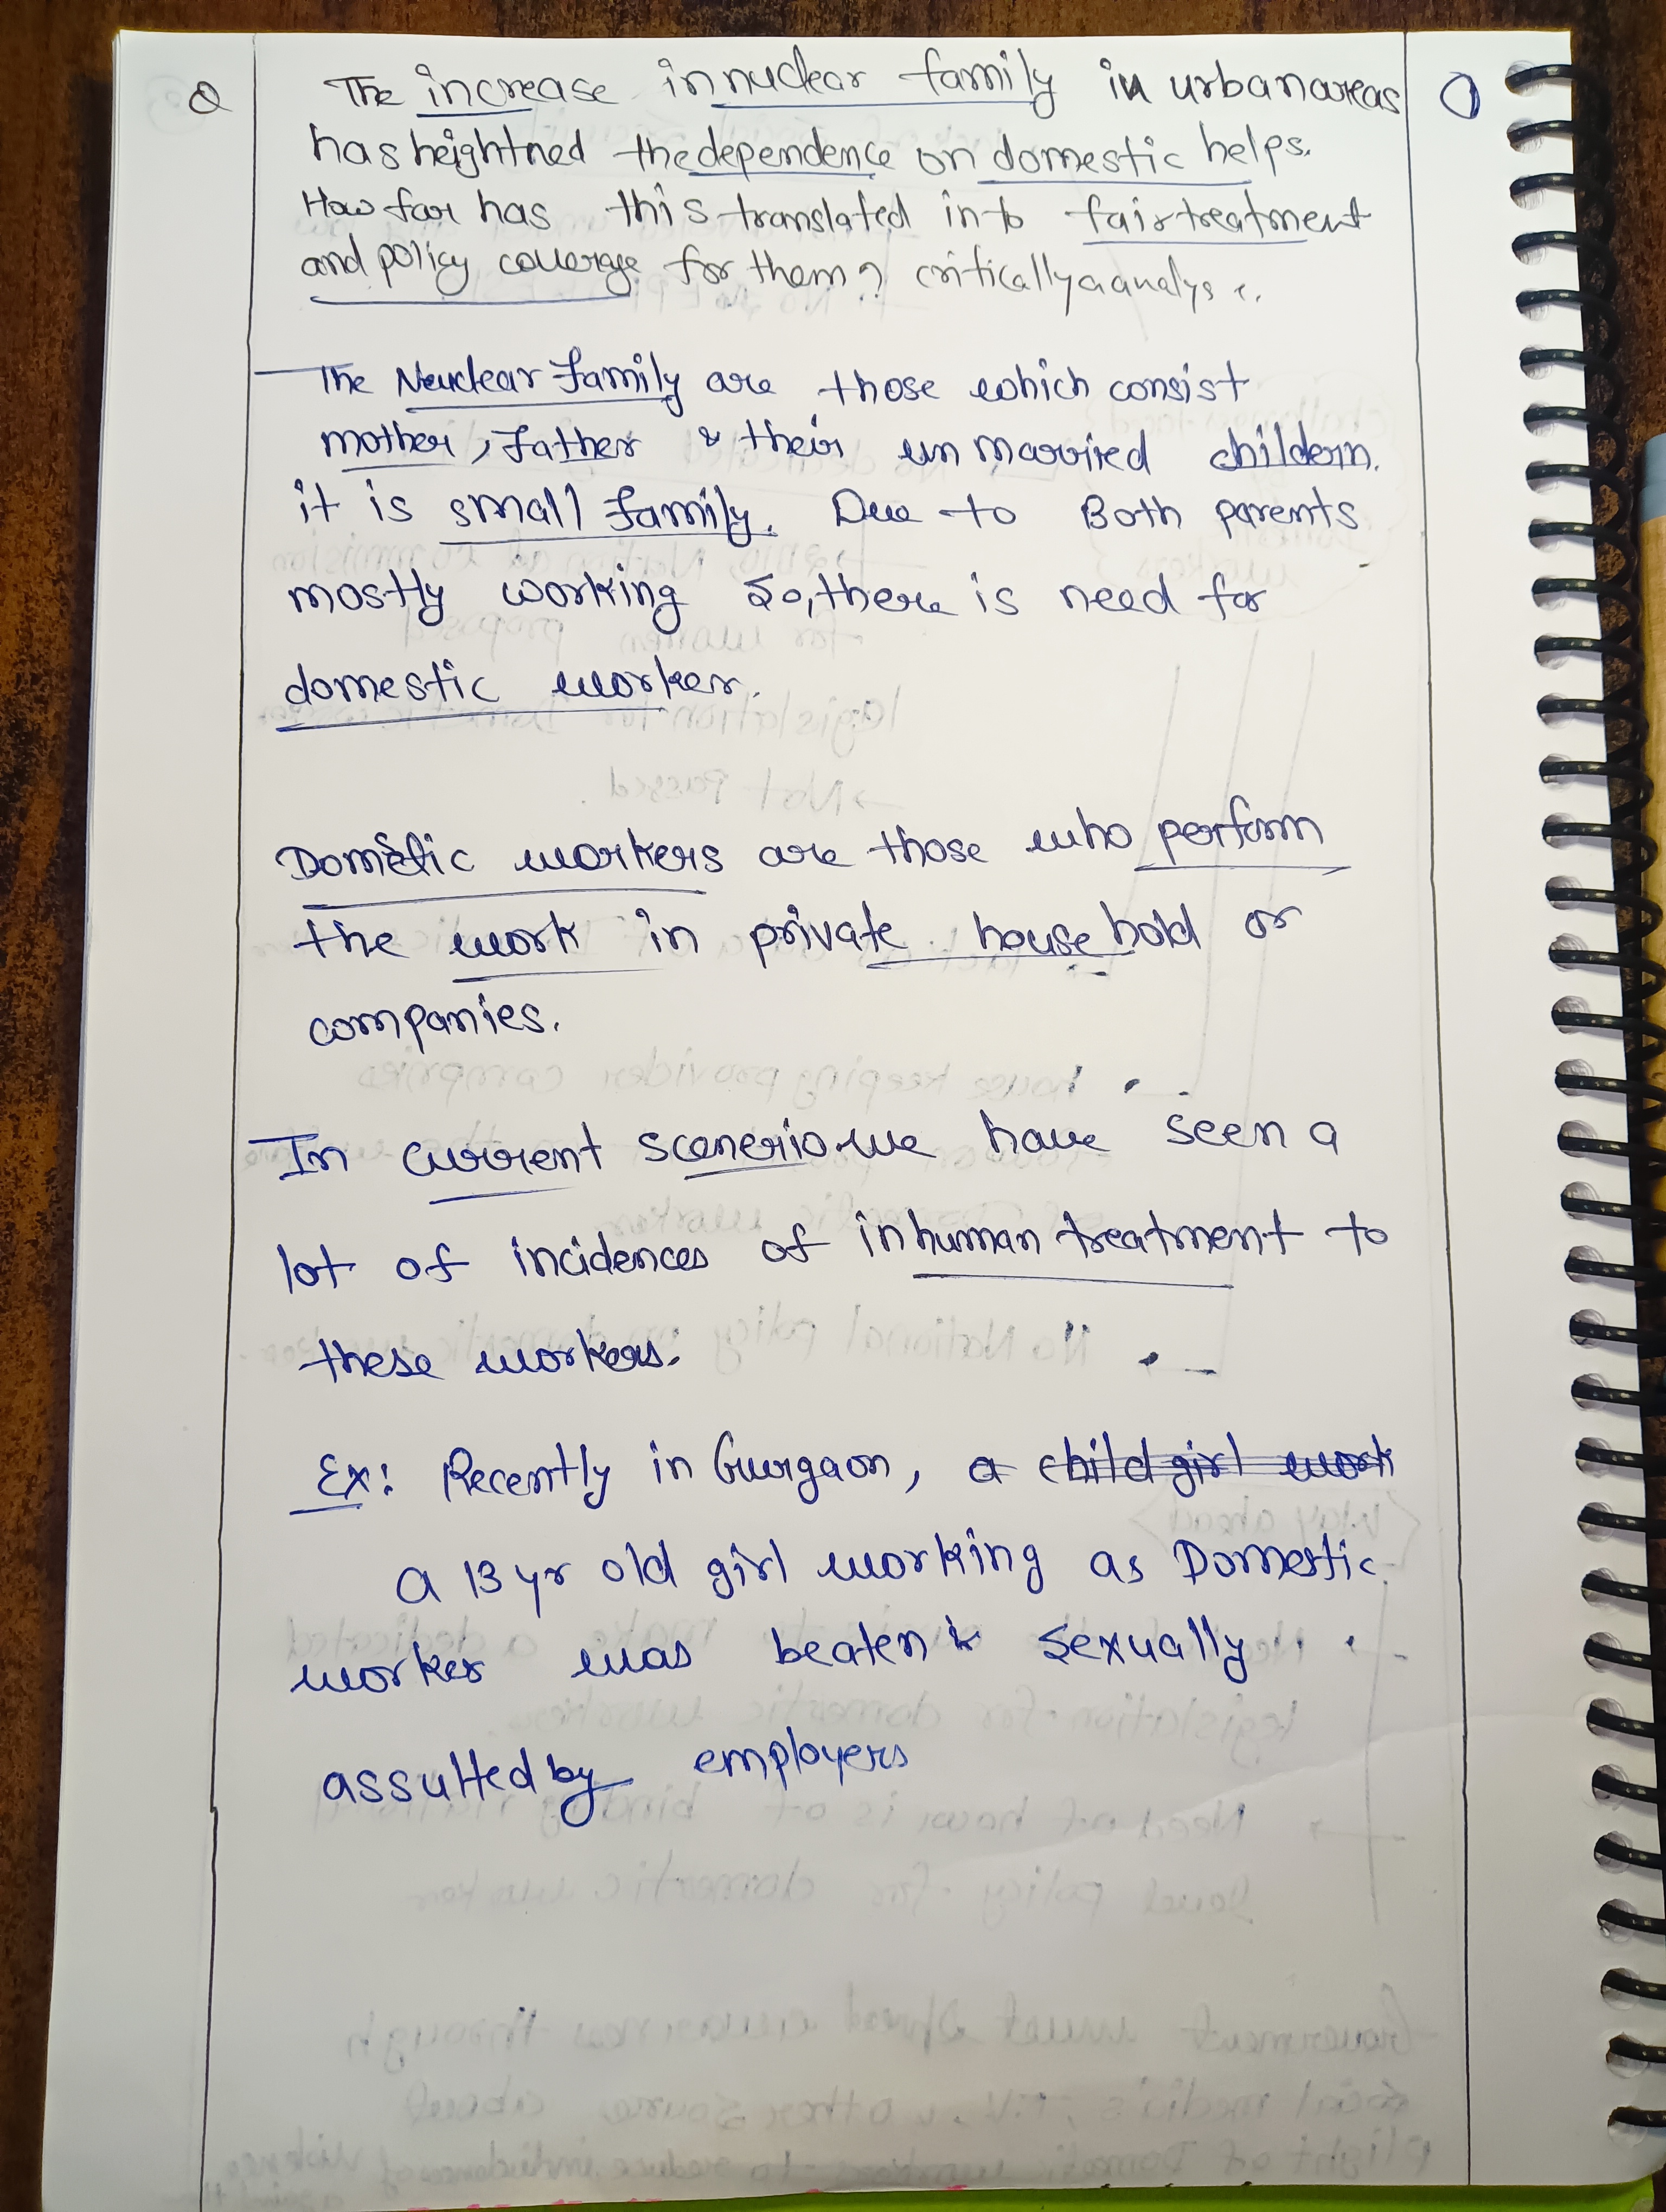 Q The increase in nuclear family in urban areas 1
has heightned the dependence on domestic helps.
How far has this translated into fair treatment
and policy coverage for them? critically analyse.
The Neuclear family are those which consist
mother, Father & their unmarried childern.
it is small family. Due to Both parents
mostly working So, there is need for
domestic worker.
Domestic workers are those who perform
the work in private household or
companies.
In current scenerio we have seen a
lot of incidences of inhuman treatment to
these workers.
Ex: Recently in Gurgaon, a child girl work
a 13 yr old girl working as Domestic
worker was beaten & sexually
assulted by employers